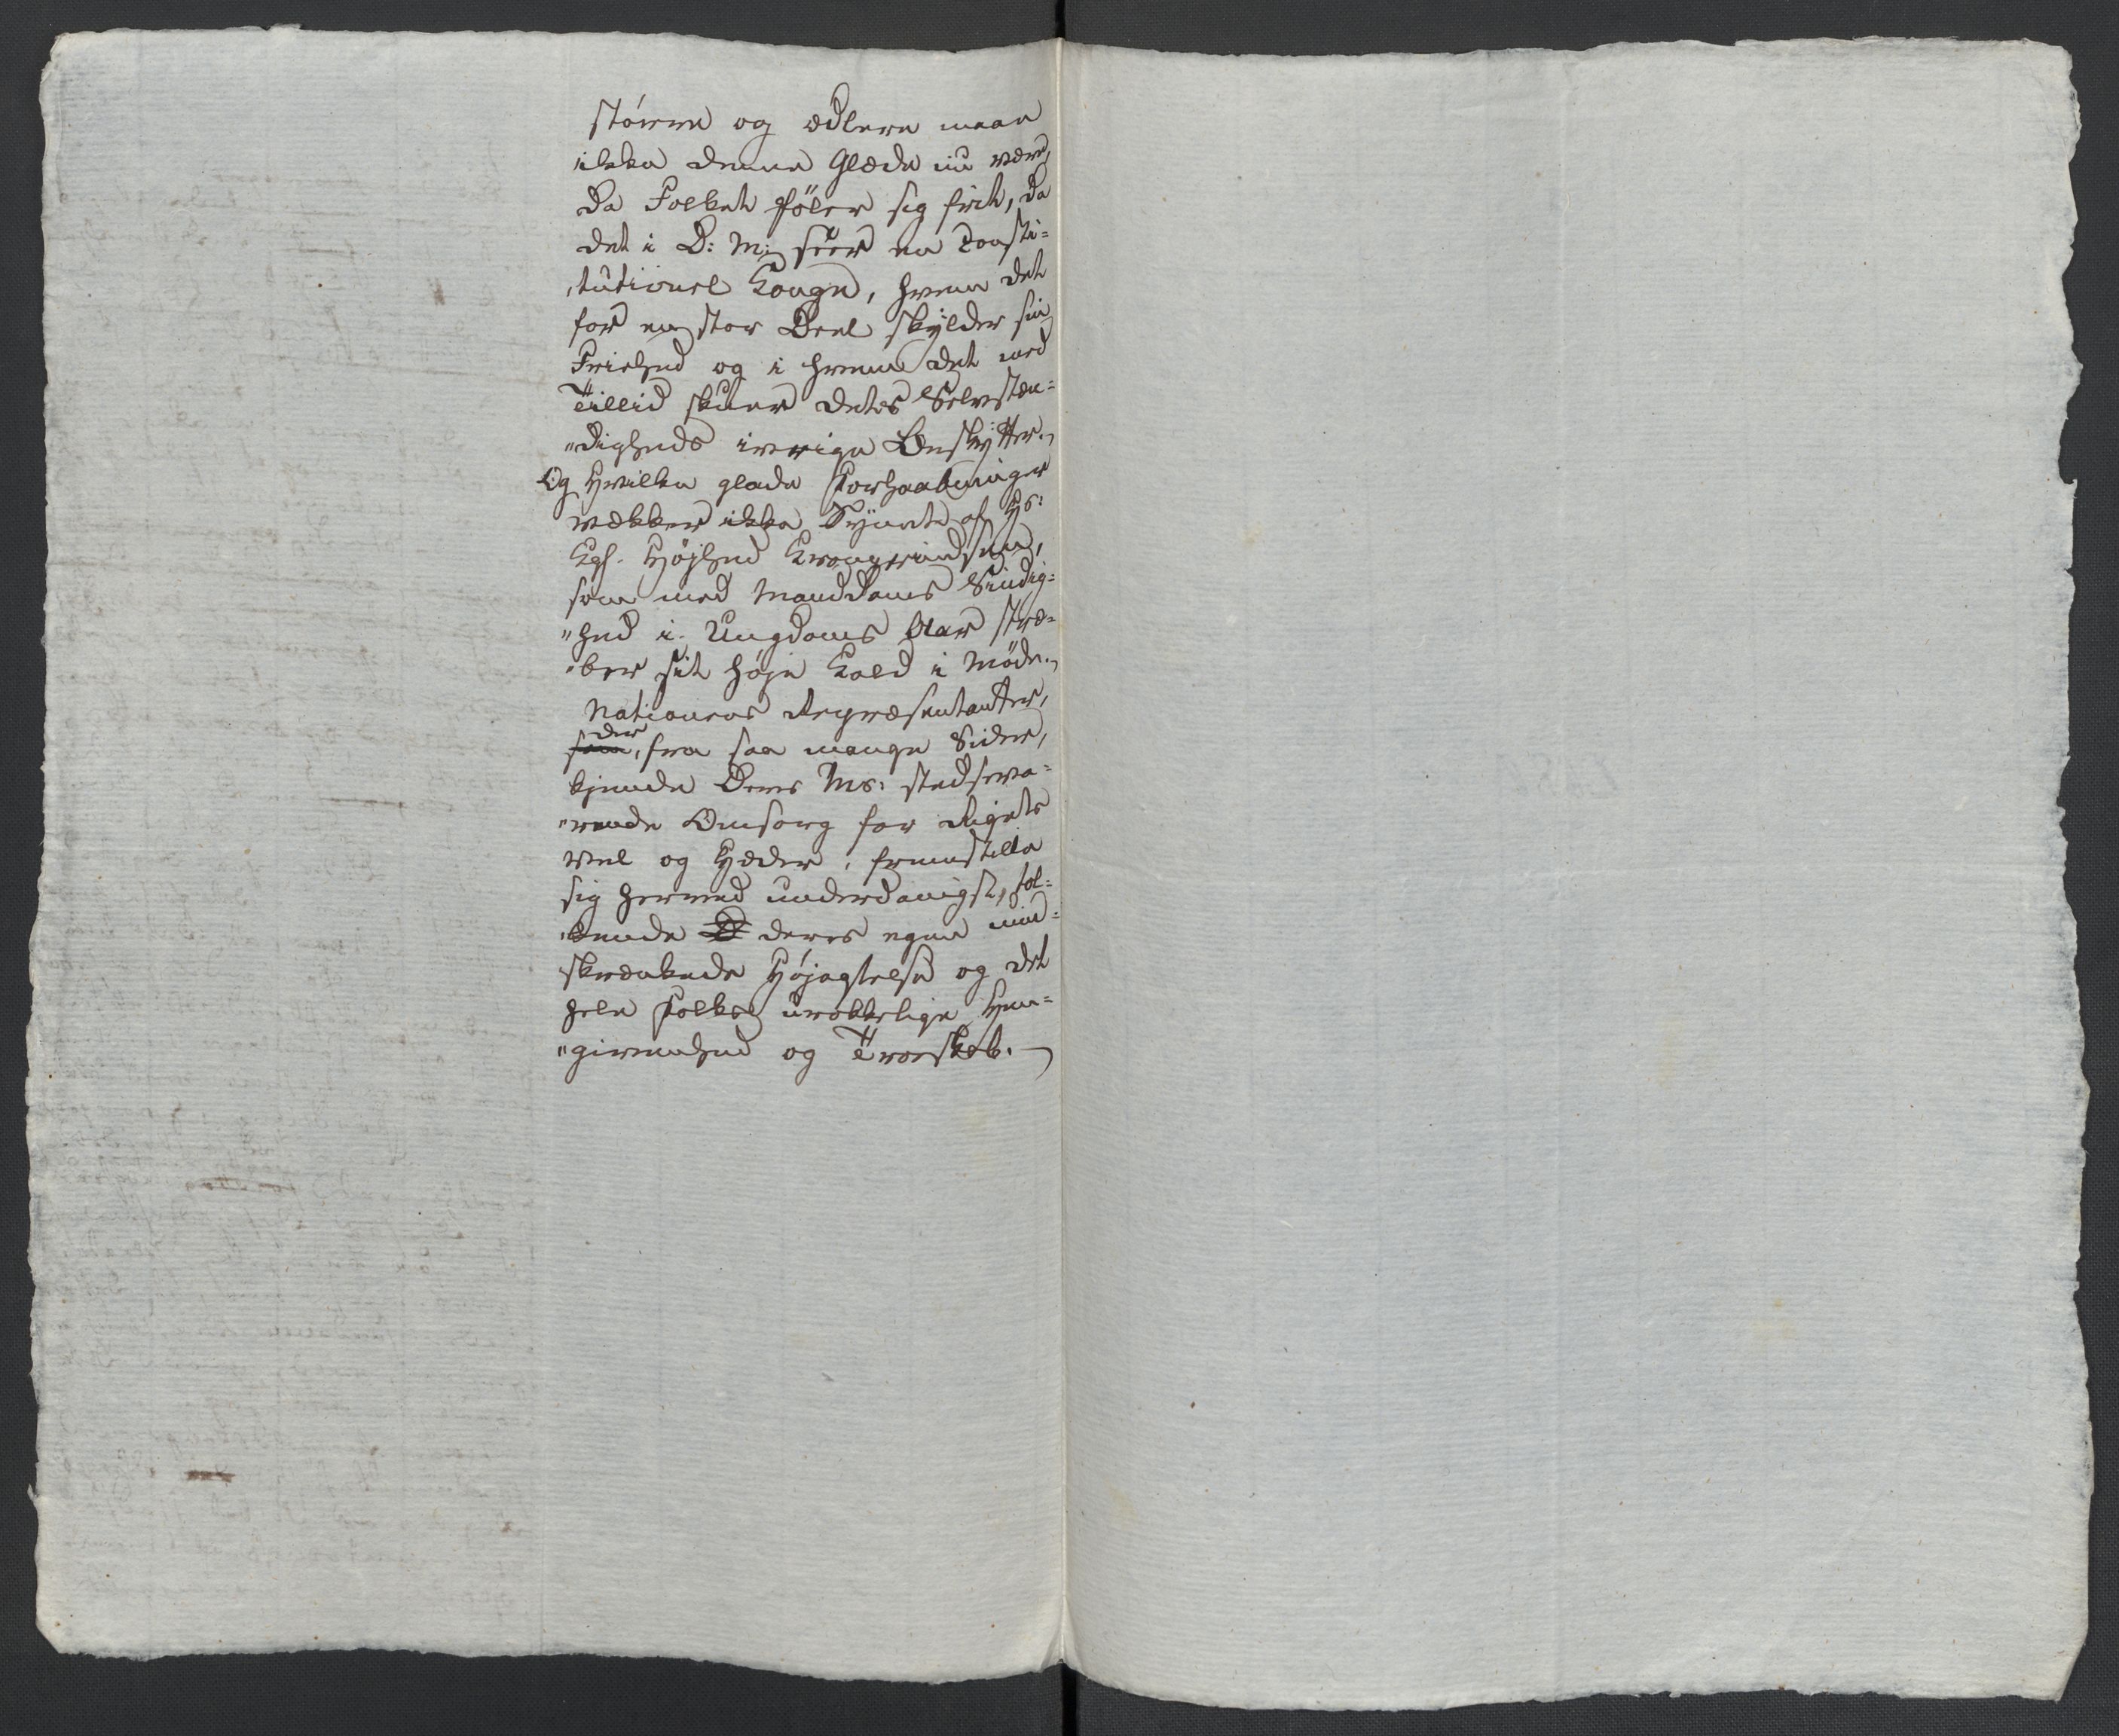 större og ædlere maae
ikke denne Glæde nu være,
da Folket föler sig frit, da
det i D: M: seer en Consti=
tutionel Konge, hvem det
for en stor Deel skylder sin
Friehed og i hvem det med
Tillid skuer dets Selvstæn=
"digheds ivrige Beskytter.
Og Hvilke glade Forhaabninger
vækker ikke Synet af Hs:
Kgl. Højhed Kronprindsen,
som med Manddoms Sindig=
"hed i Ungdoms Aar stræ=
"ber sit höje Kald i Möde.
Nationens Repræsentanter,
der
som, fra saa mange Sider,
kjende Deres Ms: stedseva=
"rende Omsorg for Rigets
Vel og Hæder, fremstille
sig herved underdanigst, tol=
"kende deres egen uind=
skrænkede Højagtelse og det
hele Folks urokkelige Hen=
"givenhed og Troeskab.